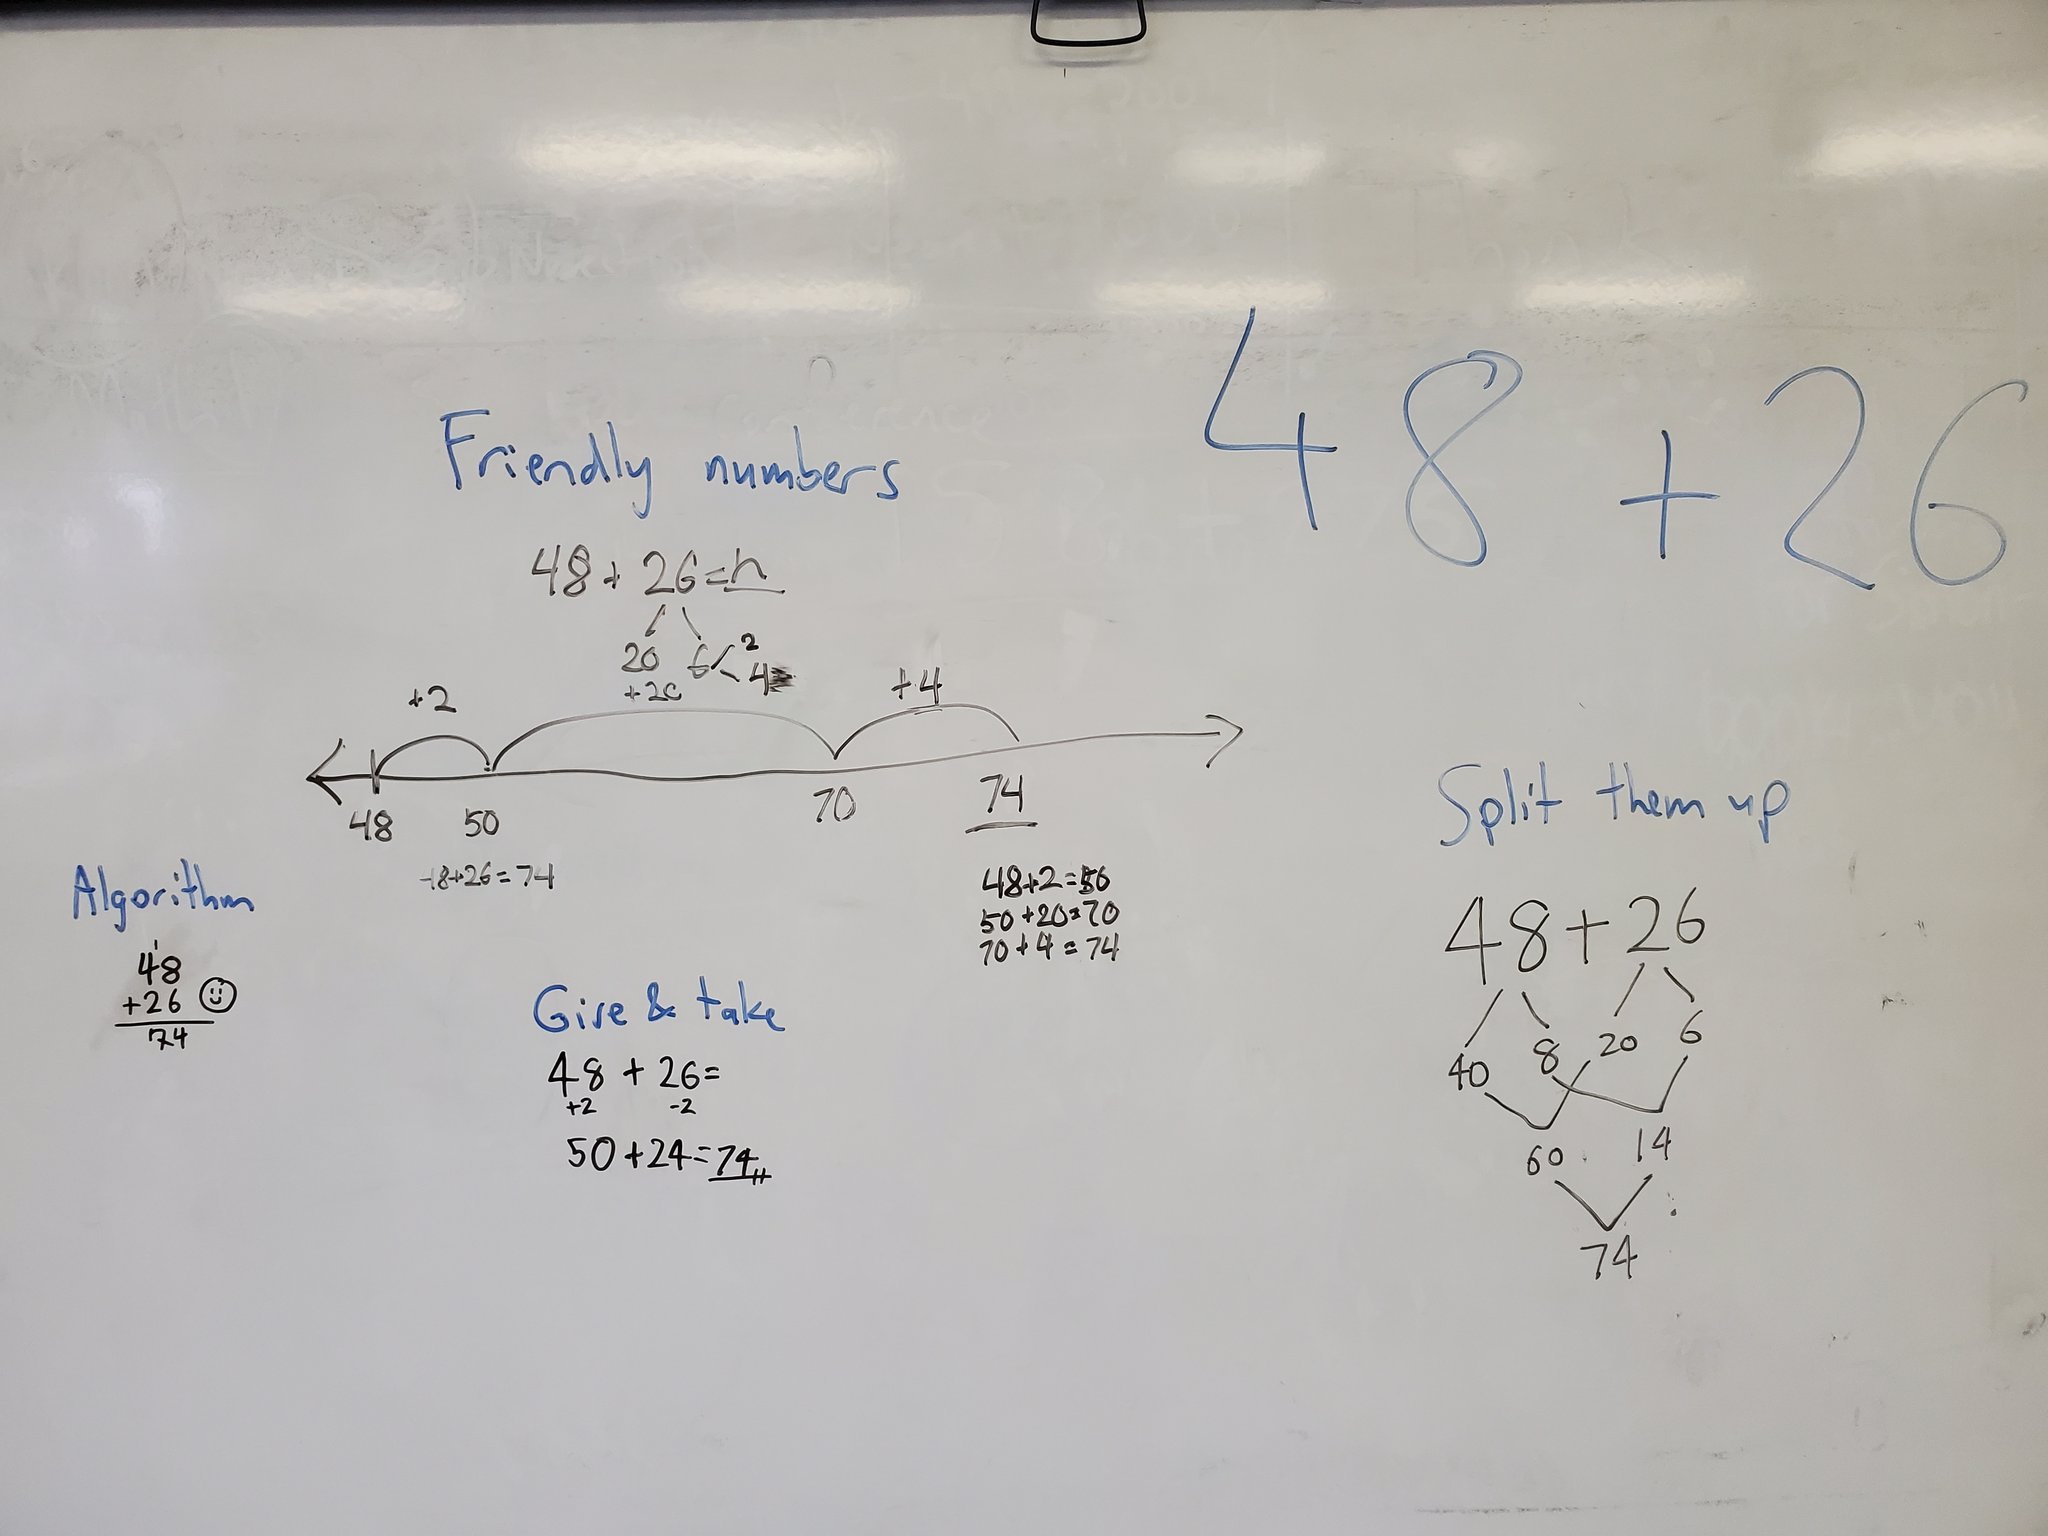 48 + 26
Friendly numbers
48 + 26 = n
20 6 < 2
4
+2
+20
+4
48 50 70 74
48+26=74
48+2=50
50+20=70
70+4=74
Algorithm
1
48
+26
74
Give & take
48 + 26=
+2 -2
50+24=74
Split them up
48+26
40 8 20 6
60 14
74